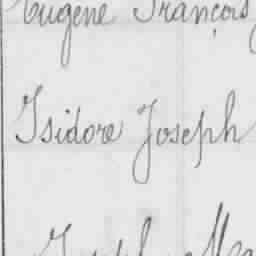 Eugène François
Isidore Joseph
Joseph